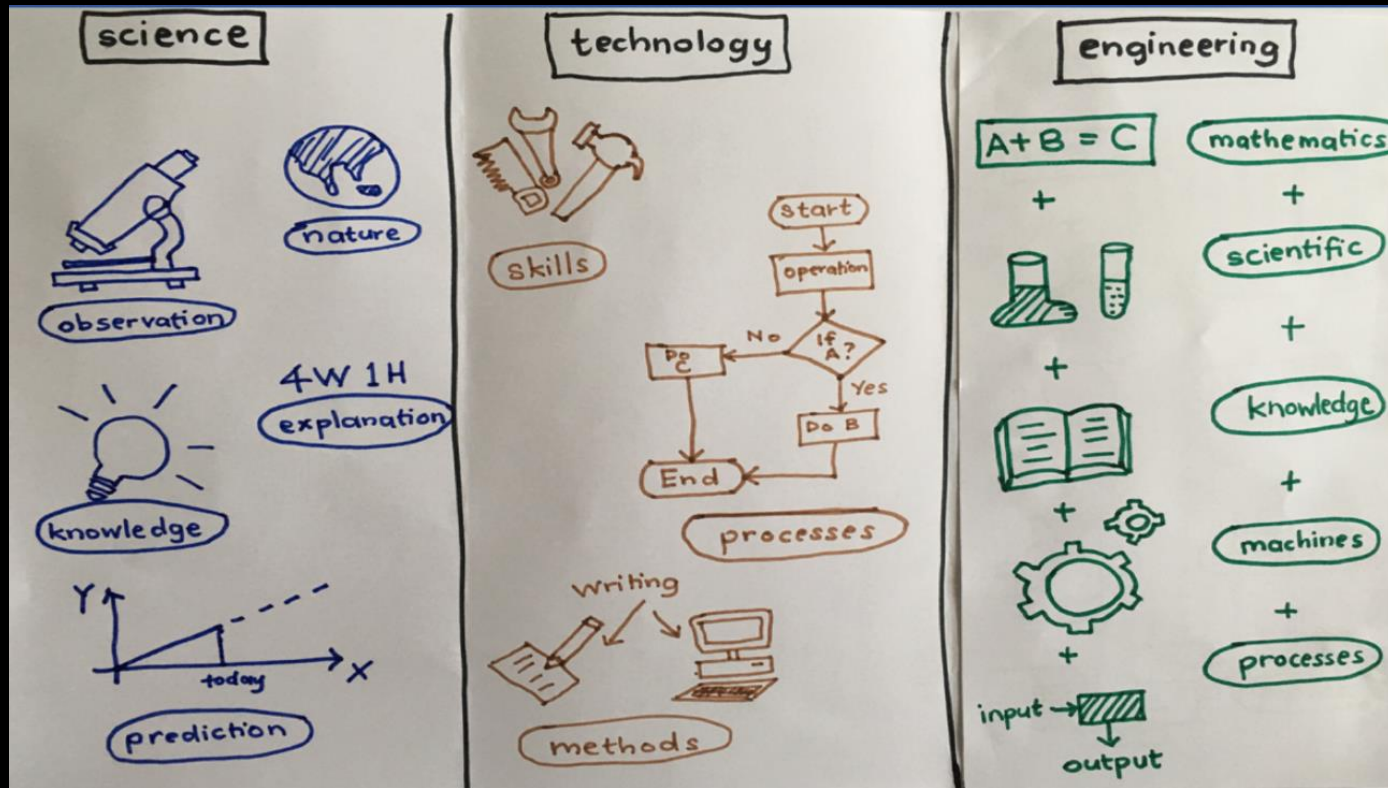 science
nature
observation
4W 1H
explanation
knowledge
Y
today
X
prediction
technology
skills
start
operation
If
A?
No
Do
C
Yes
Do B
End
processes
writing
methods
engineering
A+B = C
mathematics
+
+
scientific
+
+
knowledge
+
+
machines
+
+
processes
input
output